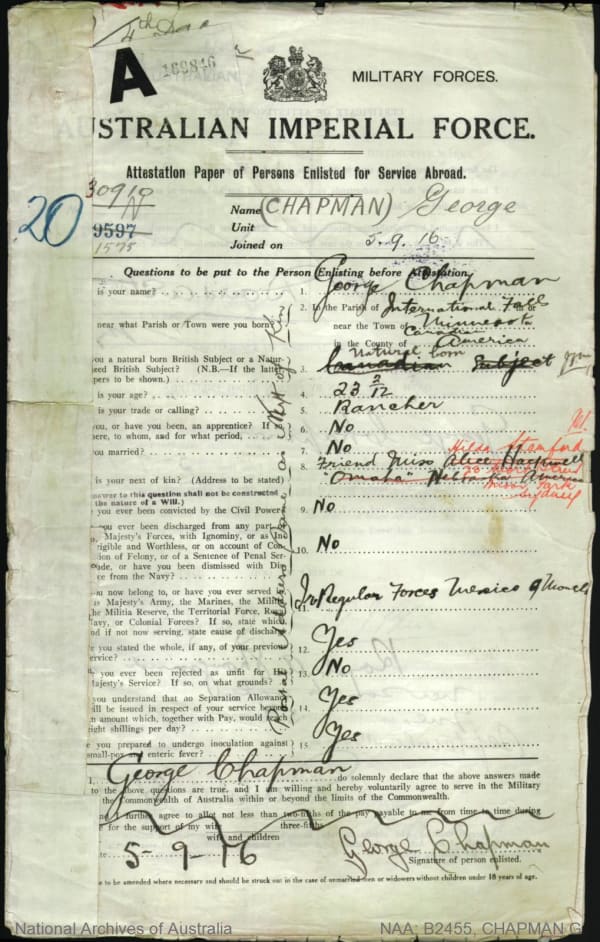 4th
A
169846
MILITARY FORCES.
USTRALIAN IMPERIAL FORCE.
Attestation Paper of Persons Enlisted for Service Abroad.
30910
N
20
9597
1575
Name (CHAPMAN) George
Unit
Joined on 5.9.16
Questions to be put to the Person Enlisting before Attestation.
is your name? 1. George Chapman
2. In the Parish of International Falls or
near what Parish or Town were you born? near the Town of Minnesota
in the County of Canadian America
you a natural born British Subject or a Natur- Natural born
ised British Subject? (N.B.—If the latter 3. Canadian Subject
pers to be shown.)
is your age? 4. 23 2/12
is your trade or calling? 5. Rancher
you, or have you been, an apprentice? If 6. No
here, to whom, and for what period,
you married? 7. No Hilda Stemford
8. Friend Miss Alice
is your next of kin? (Address to be stated) Omaha America
Park
Sydney
nswer to this question shall not be constructed
the nature of a Will.)
you ever been convicted by the Civil Power 9. No
you ever been discharged from any part
Majesty's Forces, with Ignominy, or as In-
rigible and Worthless, or on account of Con- 10. No
ion of Felony, or of a Sentence of Penal Ser-
ude, or have you been dismissed with Dis-
ce from the Navy?
u now belong to, or have you ever served
is Majesty's Army, the Marines, the Militia
he Militia Reserve, the Territorial Force, Roya 11. Regular Forces Mexico 9 Months
Navy, or Colonial Forces? If so, state which
nd if not now serving, state cause of discharg
e you stated the whole, if any, of your previous 12. Yes
ervice?
you ever been rejected as unfit for Hi 13. No
Majesty's Service? If so, on what grounds?
you understand that no Separation Allowanc
ill be issued in respect of your service beyon 14. Yes
n amount which, together with Pay, would reach
ight shillings per day?
e you prepared to undergo inoculation against 15. Yes
small-pox and enteric fever?
as Next of Kin
I, George Chapman do solemnly declare that the above answers made
to the above questions are true, and I am willing and hereby voluntarily agree to serve in the Military
the Commonwealth of Australia within or beyond the limits of the Commonwealth.
further agree to allot not less than two-fifths of the pay payable to me from time to time during
three-fifths
for the support of my wife
wife and children
5-9-16 George Chapman
Signature of person enlisted.
e to be amended where necessary and should be struck out in the case of unmarried men or widowers without children under 18 years of age.
National Archives of Australia
NAA: B2455, CHAPMAN G